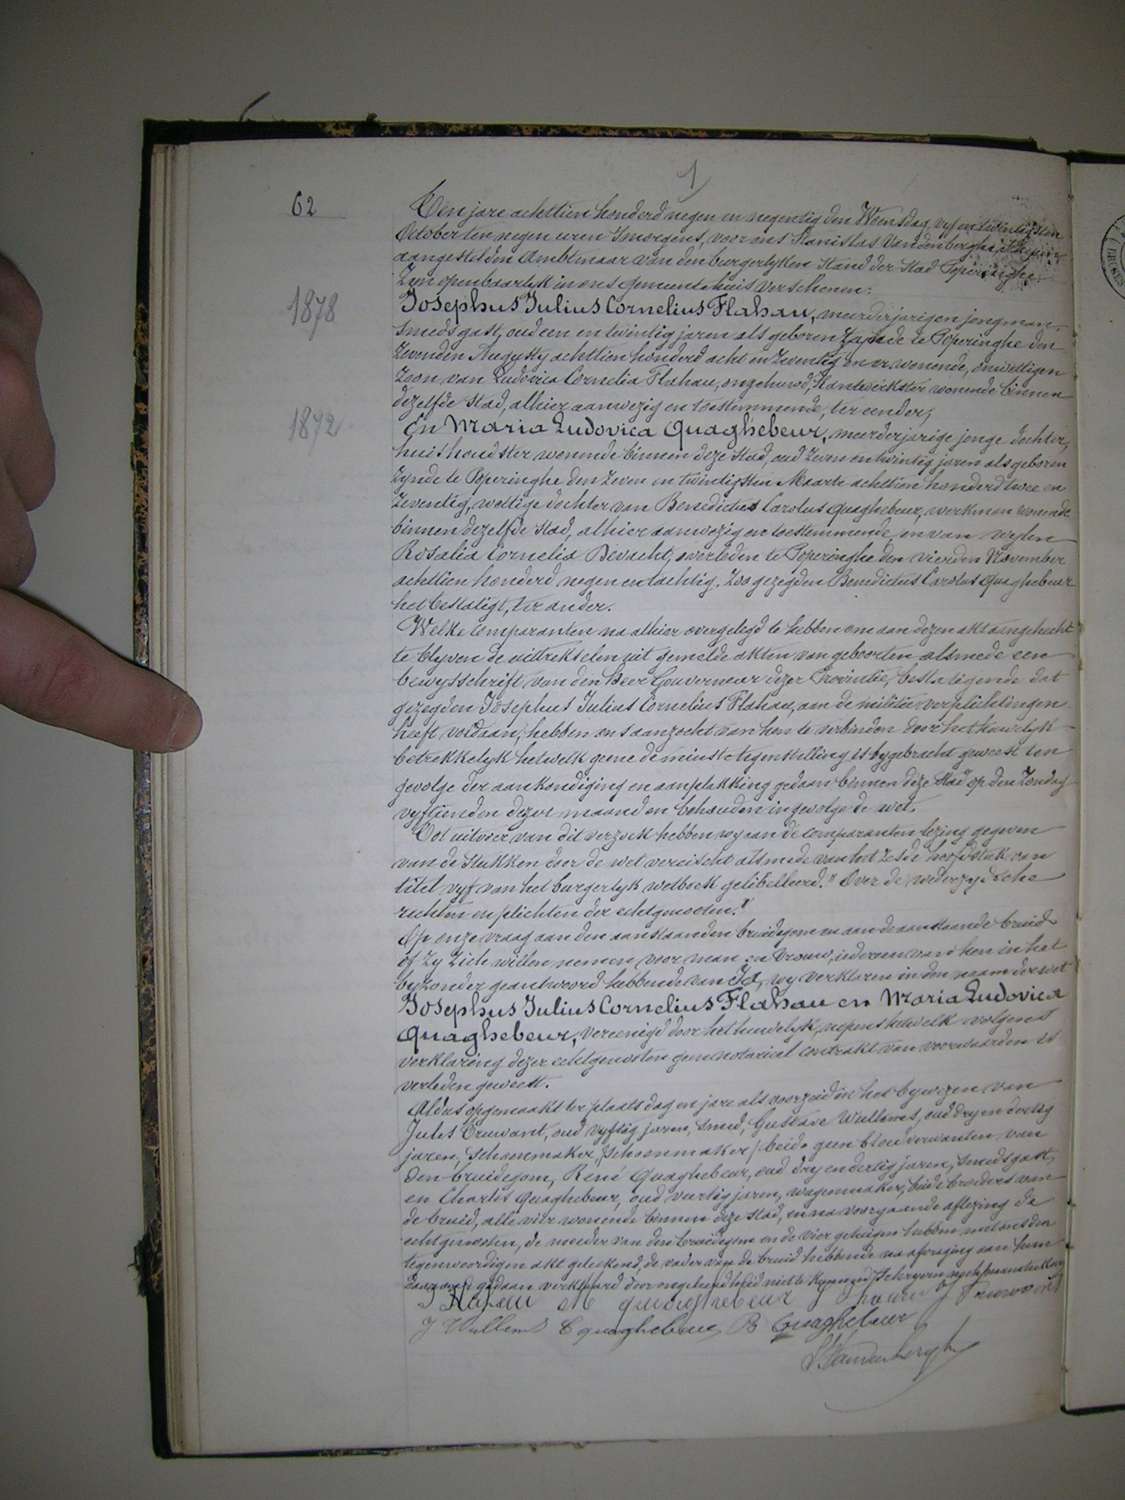 1
62
Ten jare achttien honderd negen en negentig den Woensdag, vyf en twintigsten
October ten negen uren 's morgens, voor ons Stanislas Vandenberghe, Schepen
aangestelden Ambtenaar van den burgerlyken Stand der Stad Poperinghe,
zyn openbaarlyk in ons gemeentehuis verschenen:
1878
Josephus Julius Cornelius Flahau, meerderjarigen jongman,
smedsgast, oud een en twintig jaren als geboren zynde te Poperinghe den
zevenden Augusty achttien honderd acht en zeventig en er wonende, onwettigen
zoon van Ludovica Cornelia Flahau, ongehuwd, kantwerkster wonende binnen
dezelfde stad, alhier aanwezig en toestemmende, ter eender;
1872
En Maria Ludovica Quaghebeur, meerderjarige jonge dochter,
huishoudster wonende binnen deze stad, oud zeven en twintig jaren als geboren
zynde te Poperinghe den zeven en twintigsten Maarte achttien honderd twee en
zeventig, wettige dochter van Benedictus Carolus Quaghebeur, werkman wonende
binnen dezelfde stad, alhier aanwezig en toestemmende, en van wylen
Rosalia Cornelia Devacht, overleden te Poperinghe den vierden November
achttien honderd negen en tachtig, zoo gezegden Benedictus Carolus Quaghebeur
het bestatigt, ter ander.
Welke comparanten na alhier overgelegd te hebben om aan dezen akt aangehecht
te blyven de uittrekselen uit gemelde akten van geboorten alsmede een
bewysschrift van den Heer Gouverneur dezer Provintie, bestatigende dat
gezegden Josephus Julius Cornelius Flahau, aan de militie verplichtingen
heeft voldaan; hebben ons aanzocht van hen te verbinden door het huwelyk
betrekkelyk hetwelk geene de minste tegenstelling is bygebracht geweest ten
gevolge der aankondiging en aanplakking gedaan binnen deze Stad op den Zondag
vyftienden dezer maand en behouden ingevolge de wet.
Tot uitvoer van dit verzoek hebben wy aan de comparanten lezing gegeven
van de stukken door de wet vereischt alsmede van het zesde hoofdstuk van
titel vyf van het burgerlyk wetboek gelibelleerd "Over de wederzydsche
rechten en plichten der echtgenooten."
Op onze vraag aan den aanstaanden bruidegom en aan de aanstaande bruid
of zy zich willen nemen voor man en vrouw, iedereen van hen in het
byzonder geantwoord hebbende van Ja, wy verklaren in den naam der wet
Josephus Julius Cornelius Flahau en Maria Ludovica
Quaghebeur, vereenigd door het huwelyk, nopens hetwelk volgens
verklaring dezer echtgenooten geen notarieel contrakt van voorwaarden is
verleden geweest.
Aldus opgemaakt ter plaats dag en jare als voorzeid in het bywezen van
Jules Truwant, oud vyftig jaren, smid, Gustave Wullems, oud dry en dertig
jaren, schoenmaker, beide geen bloedverwanten van
den bruidegom, René Quaghebeur, oud dry en dertig jaren, smedsgast,
en Charles Quaghebeur, oud veertig jaren, wagenmaker, beide broeders van
de bruid, alle vier wonende binnen deze stad, en na voorgaande aflezing de
echtgenooten, de moeder van den bruidegom en de vier getuigen hebben met ons den
tegenwoordigen akt geteekend, de vader van de bruid hebbende na afvraging aan hem
daarover gedaan verklaard door ongeleerdheid niet te kunnen schryven
J Flahau M Quaghebeur J Truwant
J Wullems C Quaghebeur R Quaghebeur
S. Vandenberghe